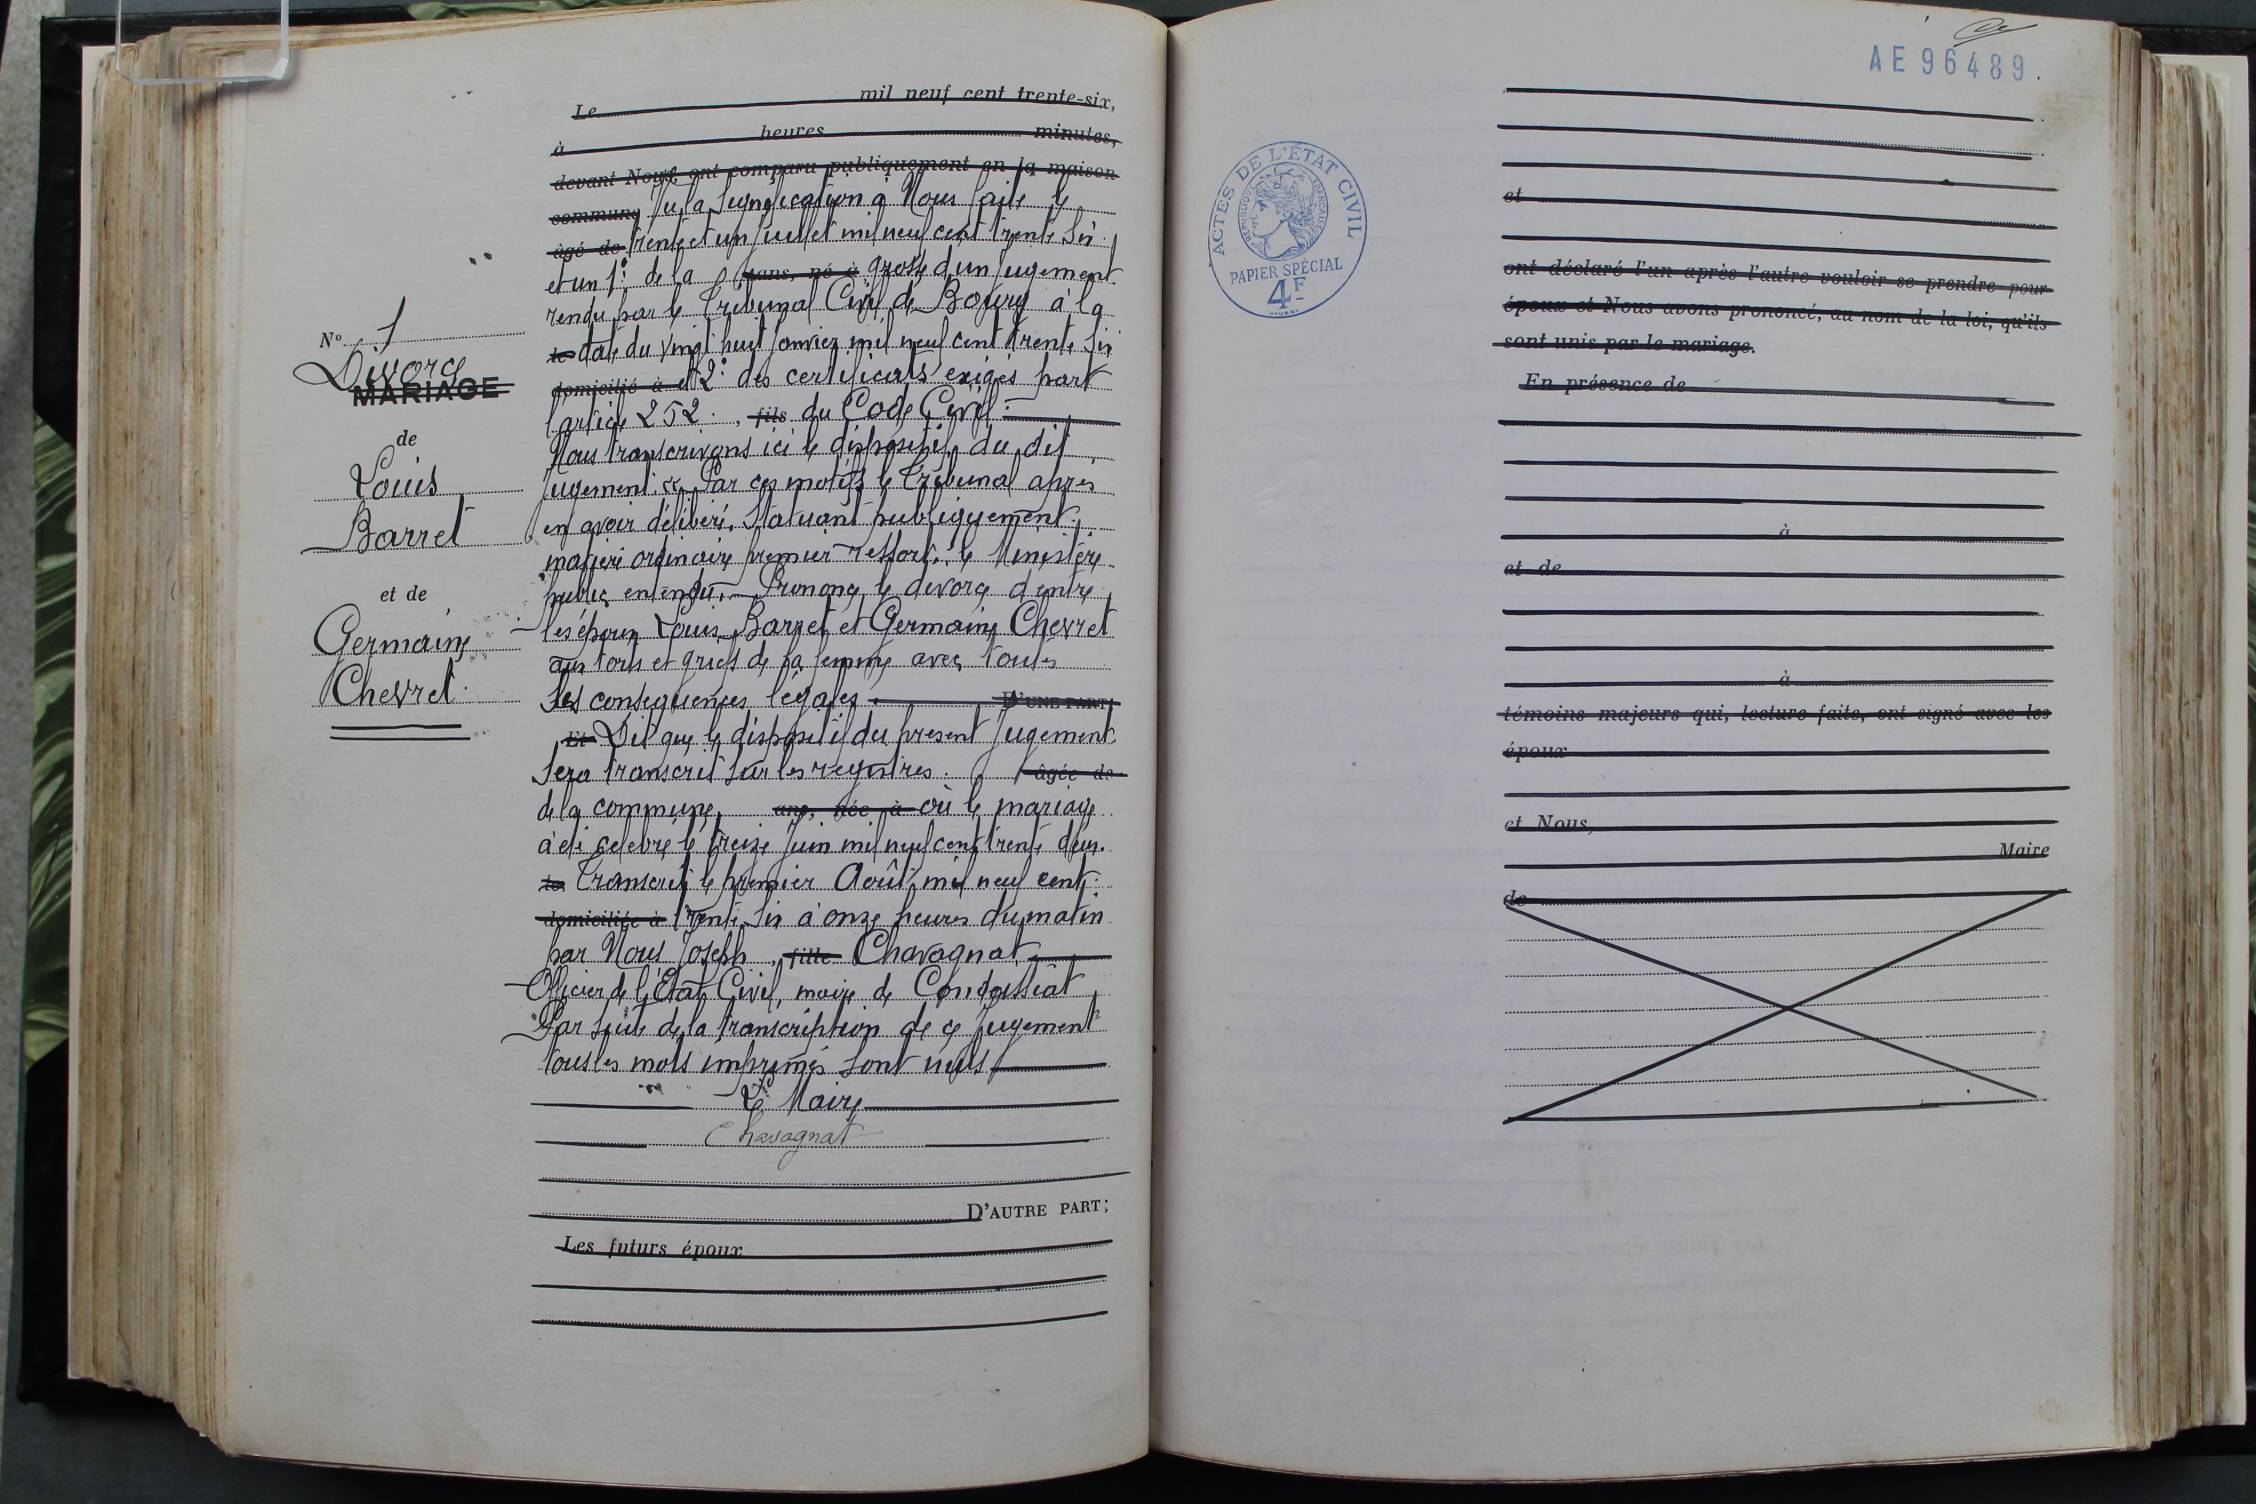 N° 1
Divorce
MARIAGE
de
Louis
Barret
et de
Germaine
Chevret.
Le mil neuf cent trente-six,
à heures minutes,
devant Nous ont comparu publiquement en la maison
commune Vu la Signification à Nous faite le
âgé de trente et un Juillet mil neuf cent trente Six
et un 1°: de la ans, né à grosse d'un Jugement
rendu par le Tribunal Civil de Bourg à la
le date du vingt huit Janvier mil neuf cent trente Six
domicilié à et 2°: des certificats exigés part
l'article 252. , fils du Code Civil:
Nous transcrivons ici le dispositif du dit
Jugement: « Par ces motifs le Tribunal après
en avoir délibéré. Statuant publiquement.
matière ordinaire premier ressort. le Ministère
public entendu. Prononce le divorce d'entre
les époux Louis Barret et Germaine Chevret
aux torts et griefs de la femme avec toutes
les consequences légales. D'UNE PART;
Et Dit que le dispositif du present Jugement
Sera transcrit Sur les registres. âgée de
de la commune, ans, née à où le mariage
à été celebré le treize Juin mil neuf cent trente deux.
le Transcrit le premier Août mil neuf cent
domiciliée à trente Six à onze heures du matin
par Nous Joseph , fille Chavagnat
Officier de l'État Civil, maire de Condeissiat
Par Suite de la transcription de ce Jugement
tous les mots imprimés sont nuls
Le Maire
Chavagnat
D'AUTRE PART;
Les futurs époux
AE96489.
ACTES DE L'ÉTAT CIVIL
RÉPUBLIQUE FRANÇAISE
PAPIER SPÉCIAL
4F
et
ont déclaré l'un après l'autre vouloir se prendre pour
époux et Nous avons prononcé, au nom de la loi, qu'ils
sont unis par le mariage.
En présence de
à
et de
à
témoins majeurs qui, lecture faite, ont signé avec les
époux
et Nous,
Maire
de